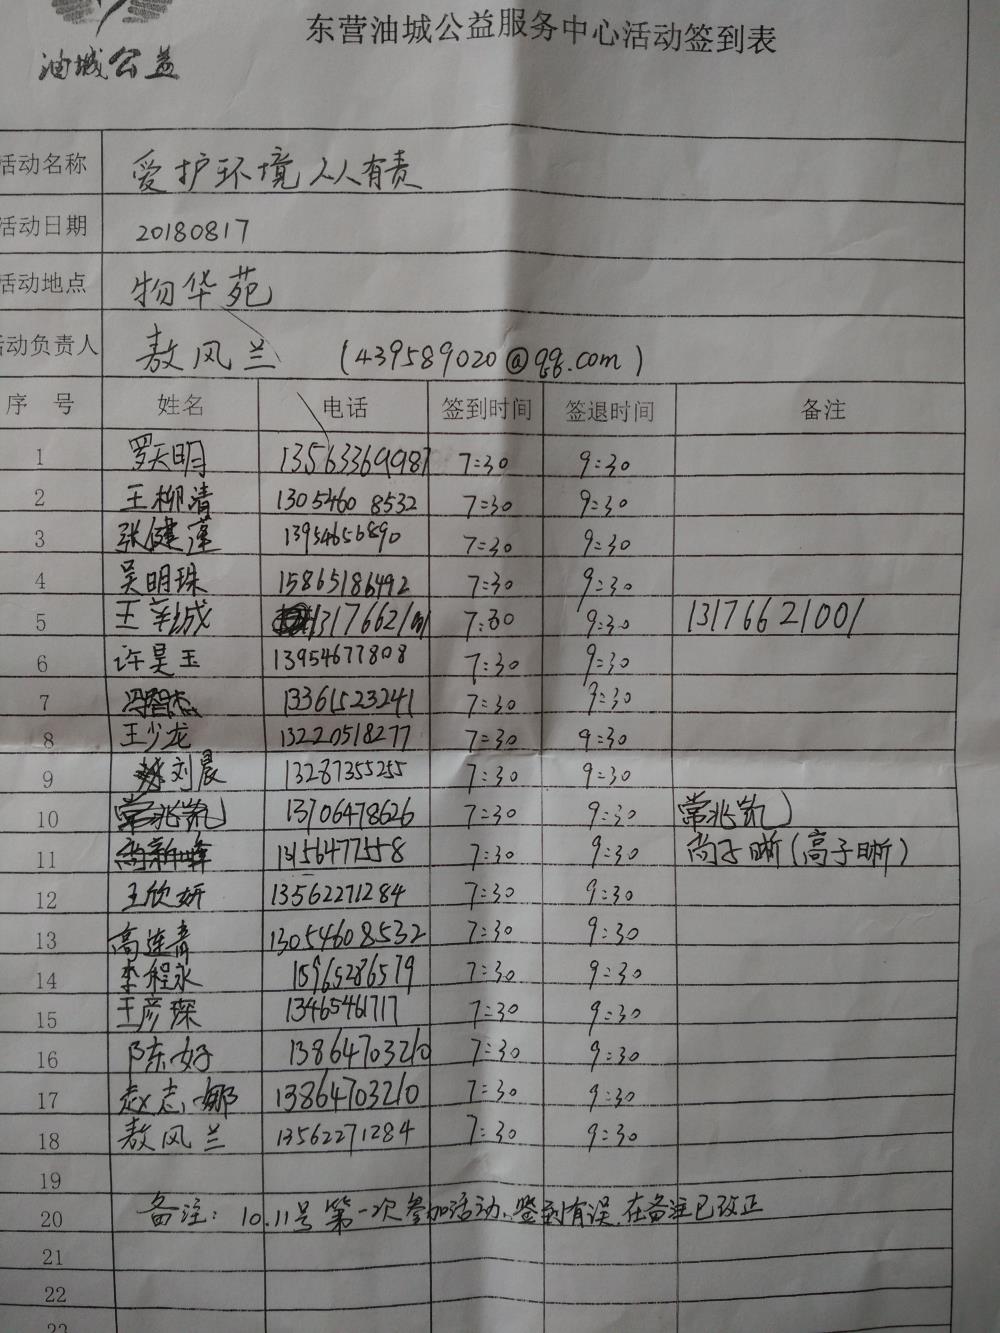 东营油城公益服务中心活动签到表
油城公益
活动名称 爱护环境人人有责
活动日期 20180817
活动地点 物华苑
活动负责人 敖风兰 (439589020@qq.com)
序 号 姓名 电话 签到时间 签退时间 备注
1 罗天明 13563369987 7:30 9:30
2 王柳清 13054608532 7:30 9:30
3 张健蓬 13954656890 7:30 9:30
4 吴明珠 15865186492 7:30 9:30
5 王辛诚 13176621001 7:30 9:30 13176621001
6 许昊玉 13954677808 7:30 9:30
7 冯智杰 13361523241 7:30 9:30
8 王少龙 13220518277 7:30 9:30
9 刘晨 13287355255 7:30 9:30
10 常兆凯 13706478626 7:30 9:30 常兆凯
11 7:30 9:30 尚子晰(高子晰)
12 王欣妍 13562271284 7:30 9:30
13 高连青 13054608532 7:30 9:30
14 李程永 15965286579 7:30 9:30
15 王彦琛 13465461717 7:30 9:30
16 陈好 13864703210 7:30 9:30
17 赵志娜 13864703210 7:30 9:30
18 敖风兰 13562271284 7:30 9:30
19
20 备注：10.11号第一次参加活动、签到有误,在备注已改正
21
22
23